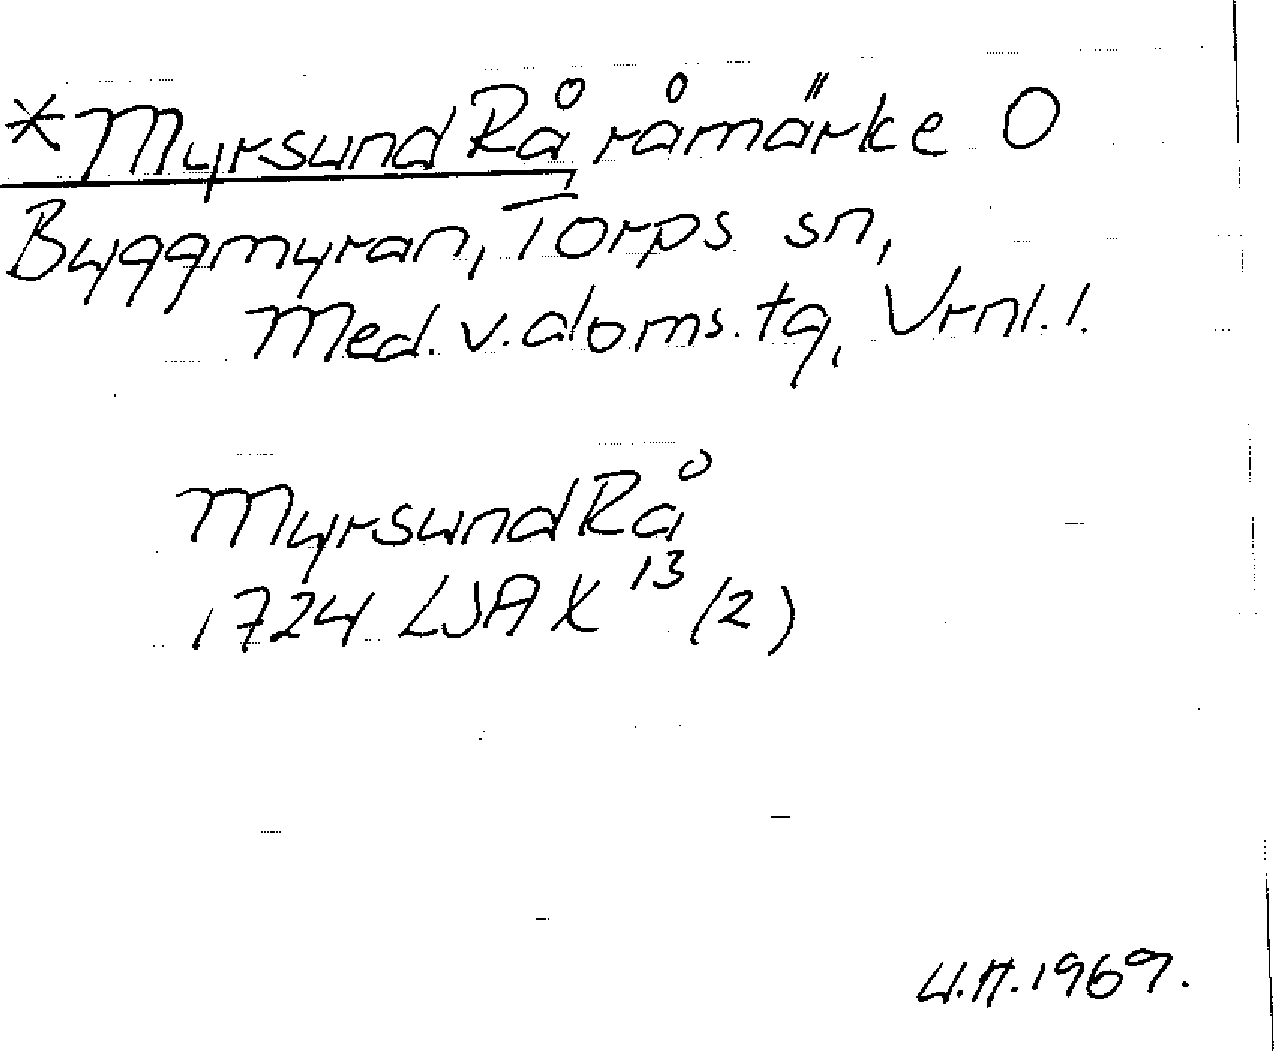 *MyrsundRå, råmärke O
Byggmyran, Torps sn,
Med. v. doms. tg, Vrnl. l.
MyrsundRå
1724 LSA X 13 (2)
U.H. 1969.